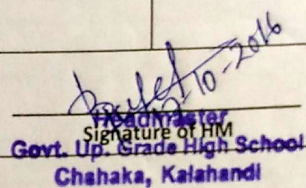 10-2016
Headmaster
Signature of HM
Govt. Up. Grade High School
Chahaka, Kalahandi